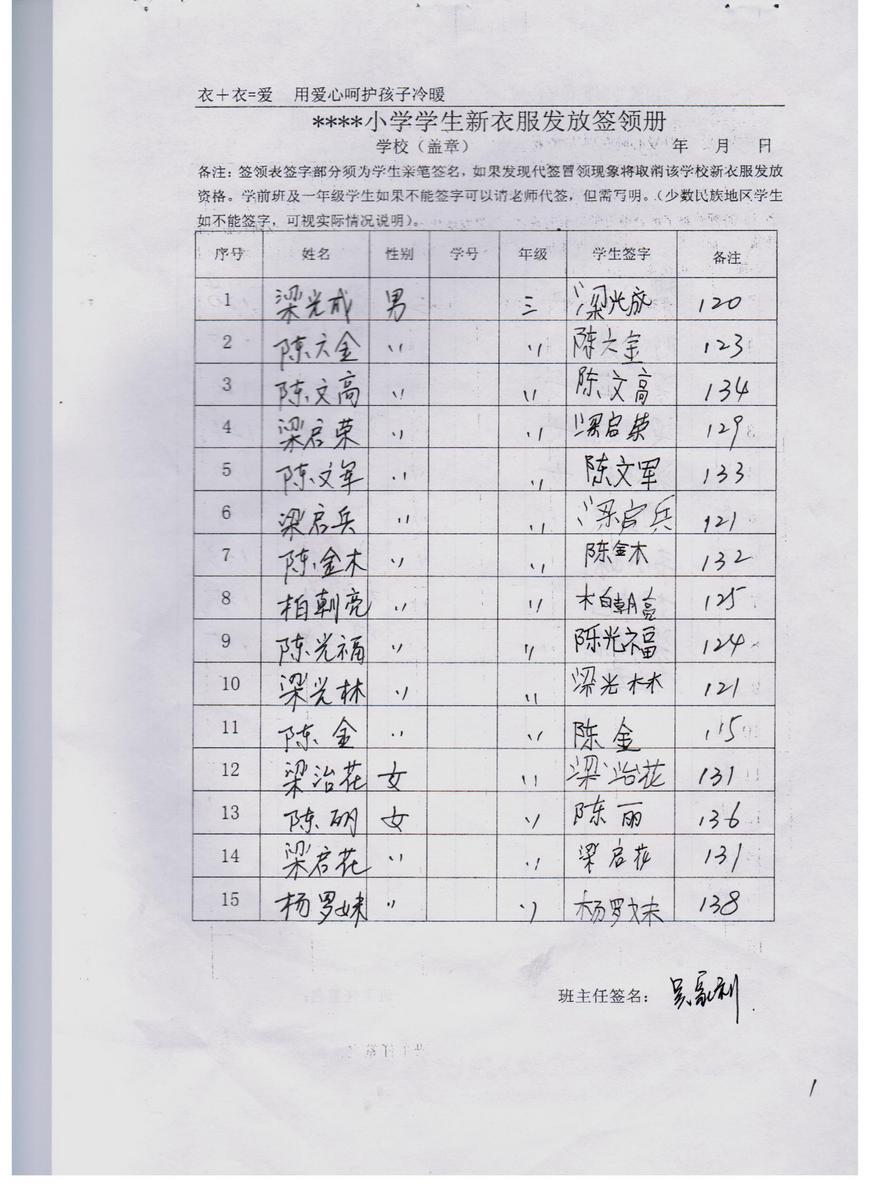 衣+衣=爱 用爱心呵护孩子冷暖
****小学学生新衣服发放签领册
学校（盖章） 年 月 日
备注：签领表签字部分须为学生亲笔签名，如果发现代签冒领现象将取消该学校新衣服发放
资格。学前班及一年级学生如果不能签字可以请老师代签，但需写明。（少数民族地区学生
如不能签字，可视实际情况说明）。
序号 姓名 性别 学号 年级 学生签字 备注
1 梁光成 男 三 梁光成 120
2 陈六金 〃 〃 陈六金 123
3 陈文高 〃 〃 陈文高 134
4 梁启荣 〃 〃 梁启荣 129
5 陈文军 〃 〃 陈文军 133
6 梁启兵 〃 〃 梁启兵 121
7 陈金木 〃 〃 陈金木 132
8 柏朝亮 〃 〃 柏朝亮 125
9 陈光福 〃 〃 陈光福 124
10 梁光林 〃 〃 梁光林 121
11 陈金 〃 〃 陈金 115
12 梁治花 女 〃 梁治花 131
13 陈 女 〃 陈丽 136
14 梁启花 〃 〃 梁启花 131
15 杨罗妹 〃 〃 杨罗妹 138
班主任签名：
1